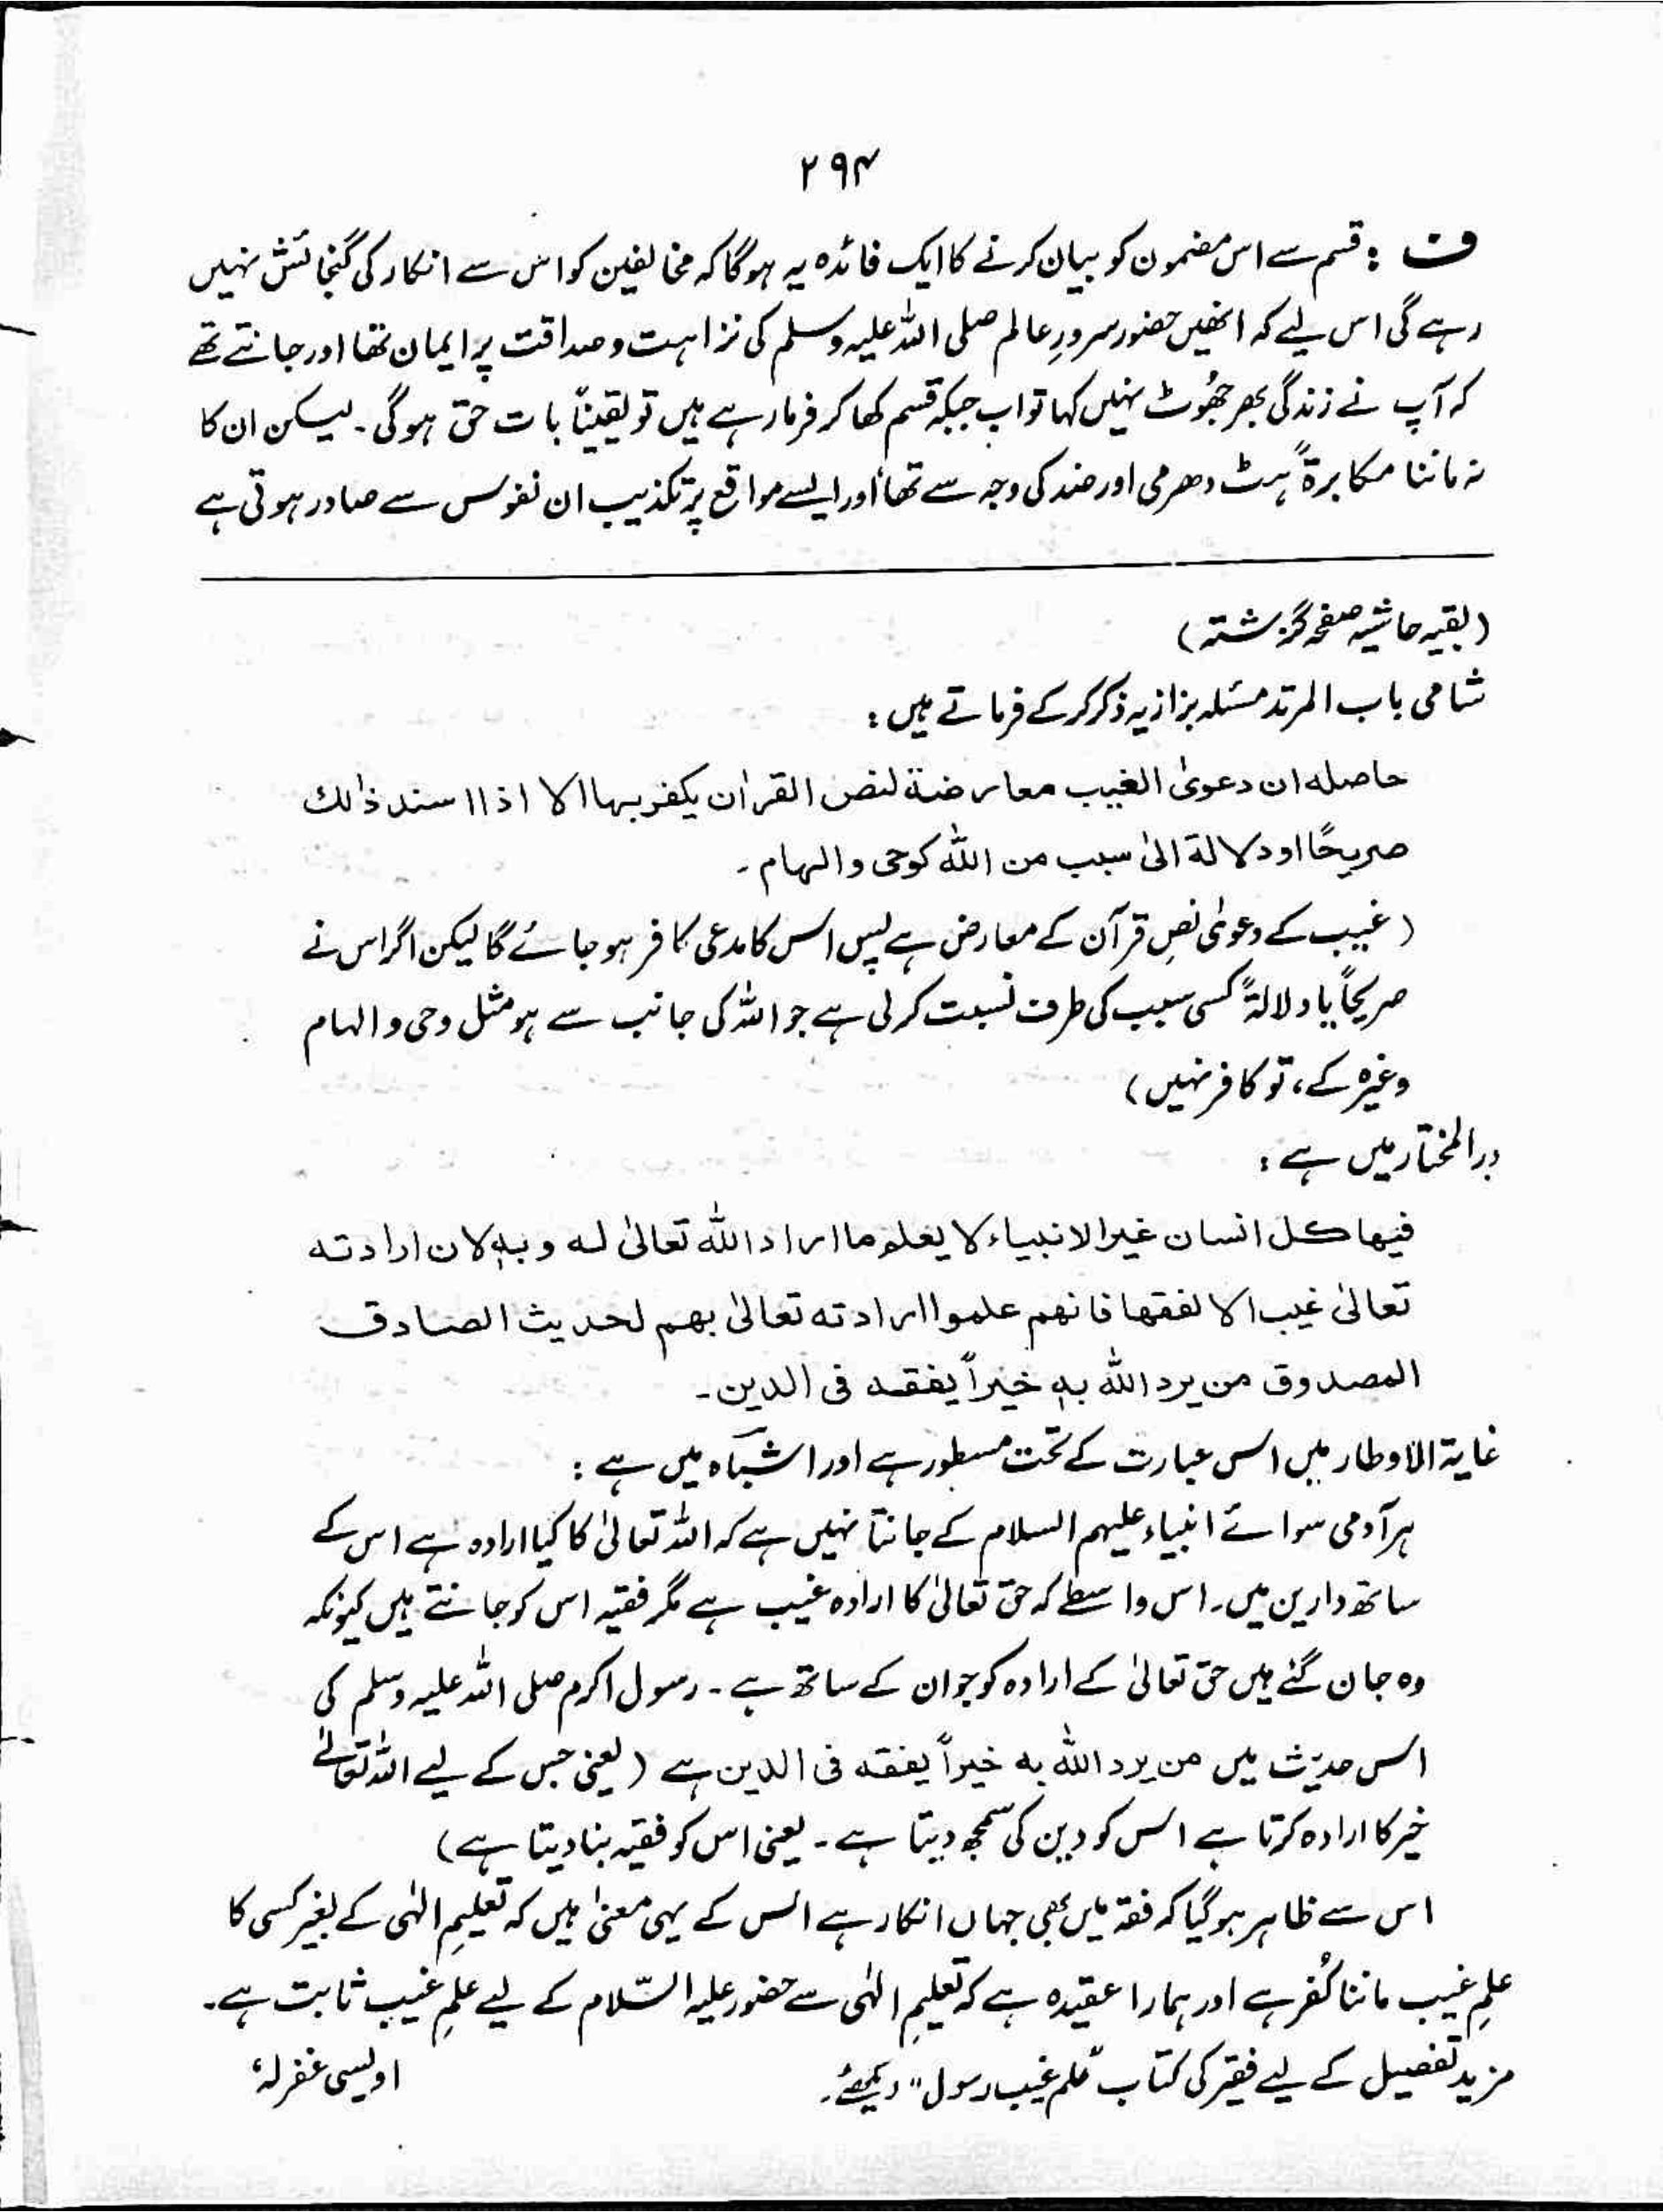 ۲۹۴
ف : قسم سے اس مضمون کو بیان کرنے کا ایک فائدہ یہ ہوگا کہ مخالفین کو اس سے انکار کی گنجائش نہیں
رہے گی اس لیے کہ انھیں حضور سرورِ عالم صلی اللہ علیہ وسلم کی نزاہت و صداقت پر ایمان تھا اور جانتے تھے
کہ آپ نے زندگی بھر جھُوٹ نہیں کہا تو اب جبکہ قسم کھا کر فرما رہے ہیں تو یقیناً بات حق ہوگی۔ لیکن ان کا
نہ ماننا مکابرۃً ہٹ دھرمی اور ضد کی وجہ سے تھا اور ایسے مواقع پر تکذیب ان نفوس سے صادر ہوتی ہے
(بقیہ حاشیہ صفحہ گزشتہ)
شامی باب المرتد مسئلہ بزازیہ ذکر کر کے فرماتے ہیں :
حاصلہ ان دعوی الغیب معارضۃ لنص القراٰن یکفر بہا الا اذا اسند ذٰلك
صریحًا او دلالۃ الیٰ سبب من اللہ کوحی والہام۔
(غیب کے دعویٰ نصِ قرآن کے معارض ہے پس اس کا مدعی کافر ہو جائے گا لیکن اگر اس نے
صریحاً یا دلالۃً کسی سبب کی طرف نسبت کر لی ہے جو اللہ کی جانب سے ہو مثل وحی و الہام
وغیرہ کے، تو کافر نہیں)
درالمختار میں ہے :
فیہا کل انسان غیر الانبیاء لا یعلم ما اراد اللہ تعالیٰ لہ و بہٖ لان ارادتہ
تعالیٰ غیب الا لفقہا فانھم علموا ارادتہ تعالیٰ بھم لحدیث الصادق
المصدوق من یرد اللہ بہٖ خیراً یفقہ فی الدین۔
غایۃ الاوطار میں اس عبارت کے تحت مسطور ہے اور اشباہ میں ہے :
ہر آدمی سوائے انبیاء علیہم السلام کے جانتا نہیں ہے کہ اللہ تعالیٰ کا کیا ارادہ ہے اس کے
ساتھ دارین میں۔ اس واسطے کہ حق تعالیٰ کا ارادہ غیب ہے مگر فقیہ اس کو جانتے ہیں کیونکہ
وہ جان گئے ہیں حق تعالیٰ کے ارادہ کو جو ان کے ساتھ ہے۔ رسول اکرم صلی اللہ علیہ وسلم کی
اس حدیث میں من یرد اللہ بہ خیراً یفقہ فی الدین ہے (یعنی جس کے لیے اللہ تعالےٰ
خیر کا ارادہ کرتا ہے اس کو دین کی سمجھ دیتا ہے۔ یعنی اس کو فقیہ بنا دیتا ہے)
اس سے ظاہر ہو گیا کہ فقہ میں بھی جہاں انکار ہے اس کے یہی معنیٰ ہیں کہ تعلیمِ الٰہی کے بغیر کسی کا
علمِ غیب ماننا کُفر ہے اور ہمارا عقیدہ ہے کہ تعلیمِ الٰہی سے حضور علیہ السّلام کے لیے علمِ غیب ثابت ہے۔
مزید تفصیل کے لیے فقیر کی کتاب "علم غیب رسول" دیکھئے۔ اویسی غفرلہٗ